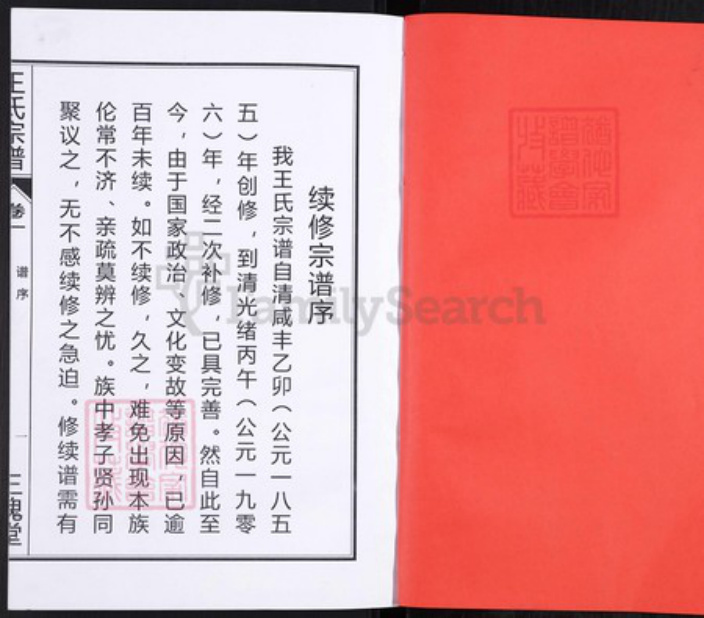 续修宗谱序
我王氏宗谱自清咸丰乙卯（公元一八五
五）年创修，到清光绪丙午（公元一九零
六）年，经二次补修，已具完善。然自此至
今，由于国家政治、文化变故等原因，已逾
百年未续。如不续修，久之，难免出现本族
伦常不济、亲疏莫辨之忧。族中孝子贤孙同
聚议之，无不感续修之急迫。修续谱需有
王氏宗谱
卷一
谱序
一
三槐堂
FamilySearch